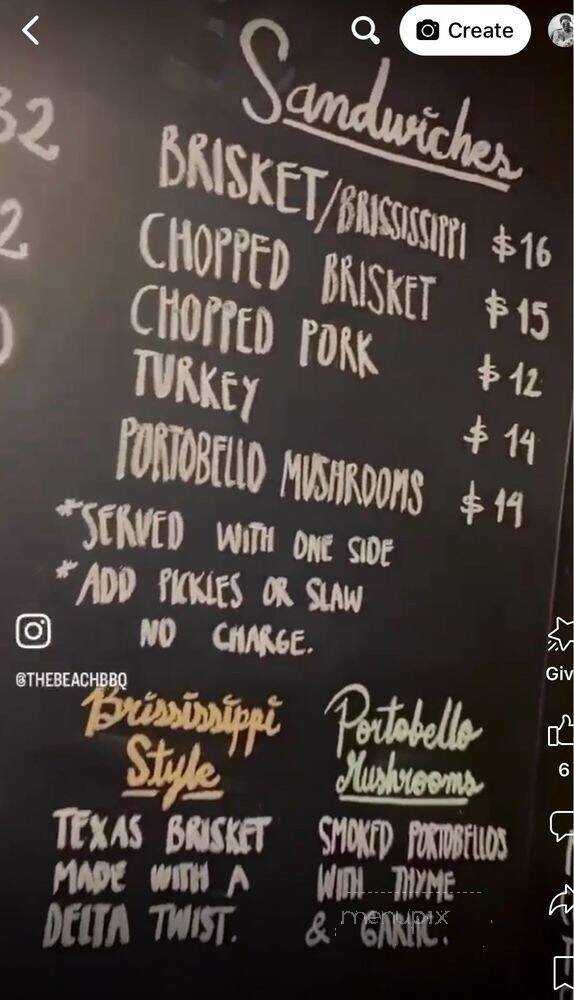 Create
Sandwiches
32
BRISKET/BRISSISSIPPI $16
2
CHOPPED BRISKET $15
CHOPPED PORK $12
TURKEY $14
PORTOBELLO MUSHROOMS $14
*SERVED WITH ONE SIDE
*ADD PICKLES OR SLAW
NO CHARGE.
@THEBEACHBBQ
Giv
6
Brississippi
Style
TEXAS BRISKET
MADE WITH A
DELTA TWIST.
Portobello
Mushrooms
SMOKED PORTOBELLOS
WITH THYME
& GARLIC.
menupix